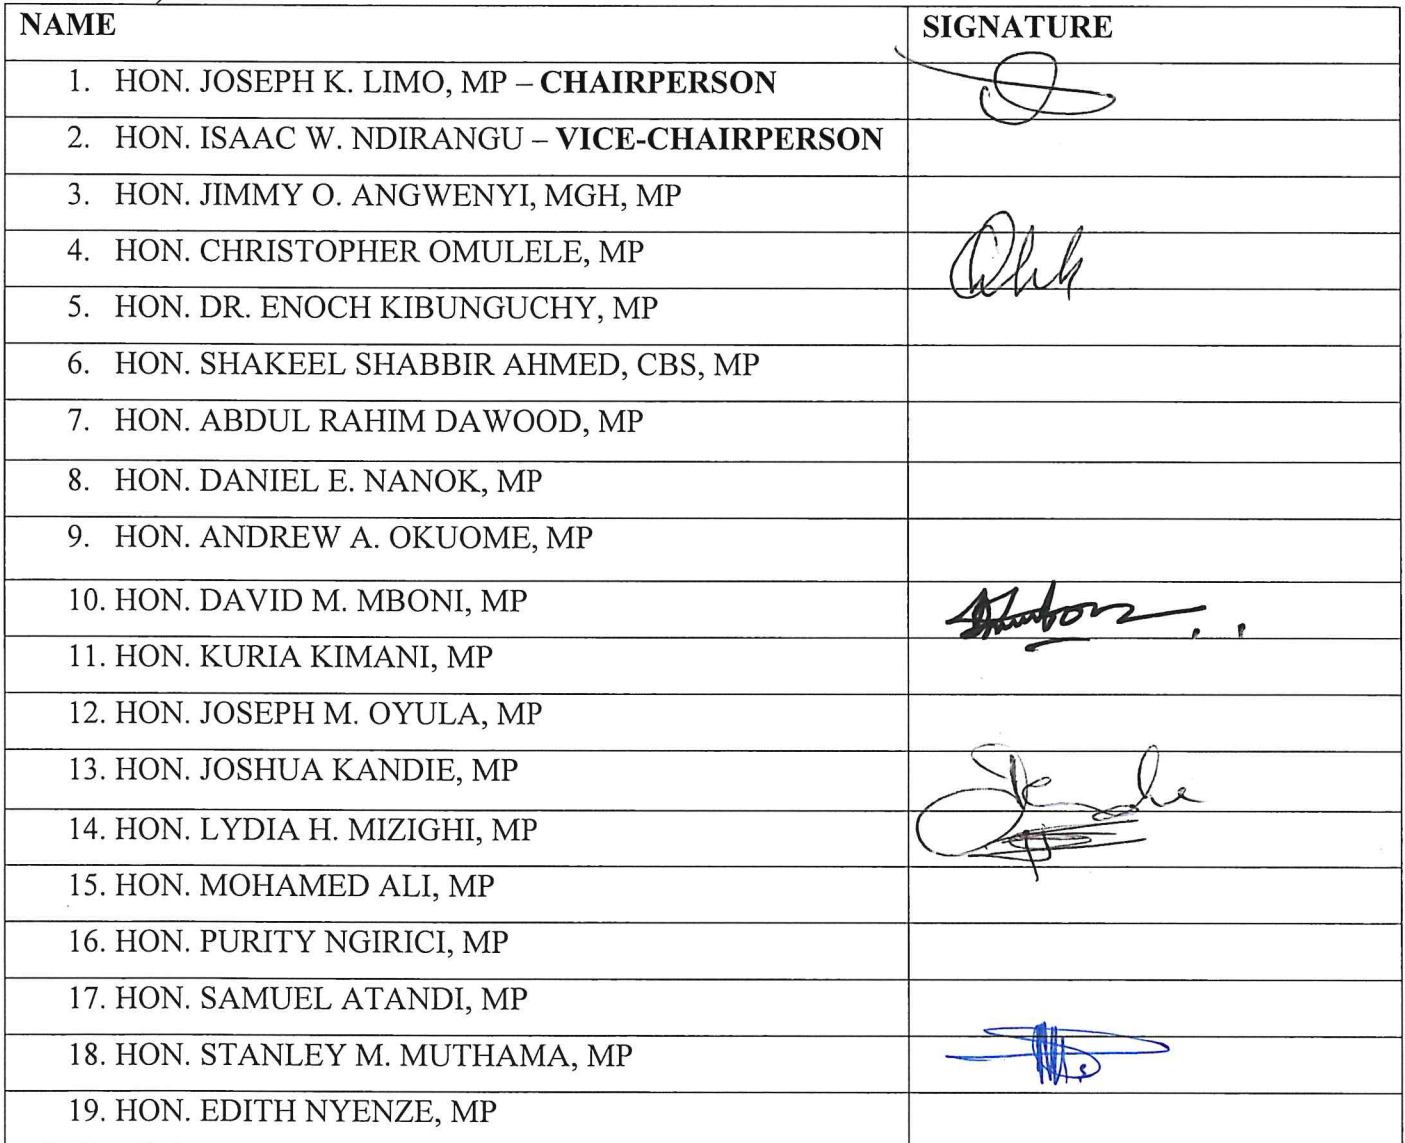 NAME SIGNATURE
1. HON. JOSEPH K. LIMO, MP – CHAIRPERSON
2. HON. ISAAC W. NDIRANGU – VICE-CHAIRPERSON
3. HON. JIMMY O. ANGWENYI, MGH, MP
4. HON. CHRISTOPHER OMULELE, MP
5. HON. DR. ENOCH KIBUNGUCHY, MP
6. HON. SHAKEEL SHABBIR AHMED, CBS, MP
7. HON. ABDUL RAHIM DAWOOD, MP
8. HON. DANIEL E. NANOK, MP
9. HON. ANDREW A. OKUOME, MP
10. HON. DAVID M. MBONI, MP
11. HON. KURIA KIMANI, MP
12. HON. JOSEPH M. OYULA, MP
13. HON. JOSHUA KANDIE, MP
14. HON. LYDIA H. MIZIGHI, MP
15. HON. MOHAMED ALI, MP
16. HON. PURITY NGIRICI, MP
17. HON. SAMUEL ATANDI, MP
18. HON. STANLEY M. MUTHAMA, MP
19. HON. EDITH NYENZE, MP